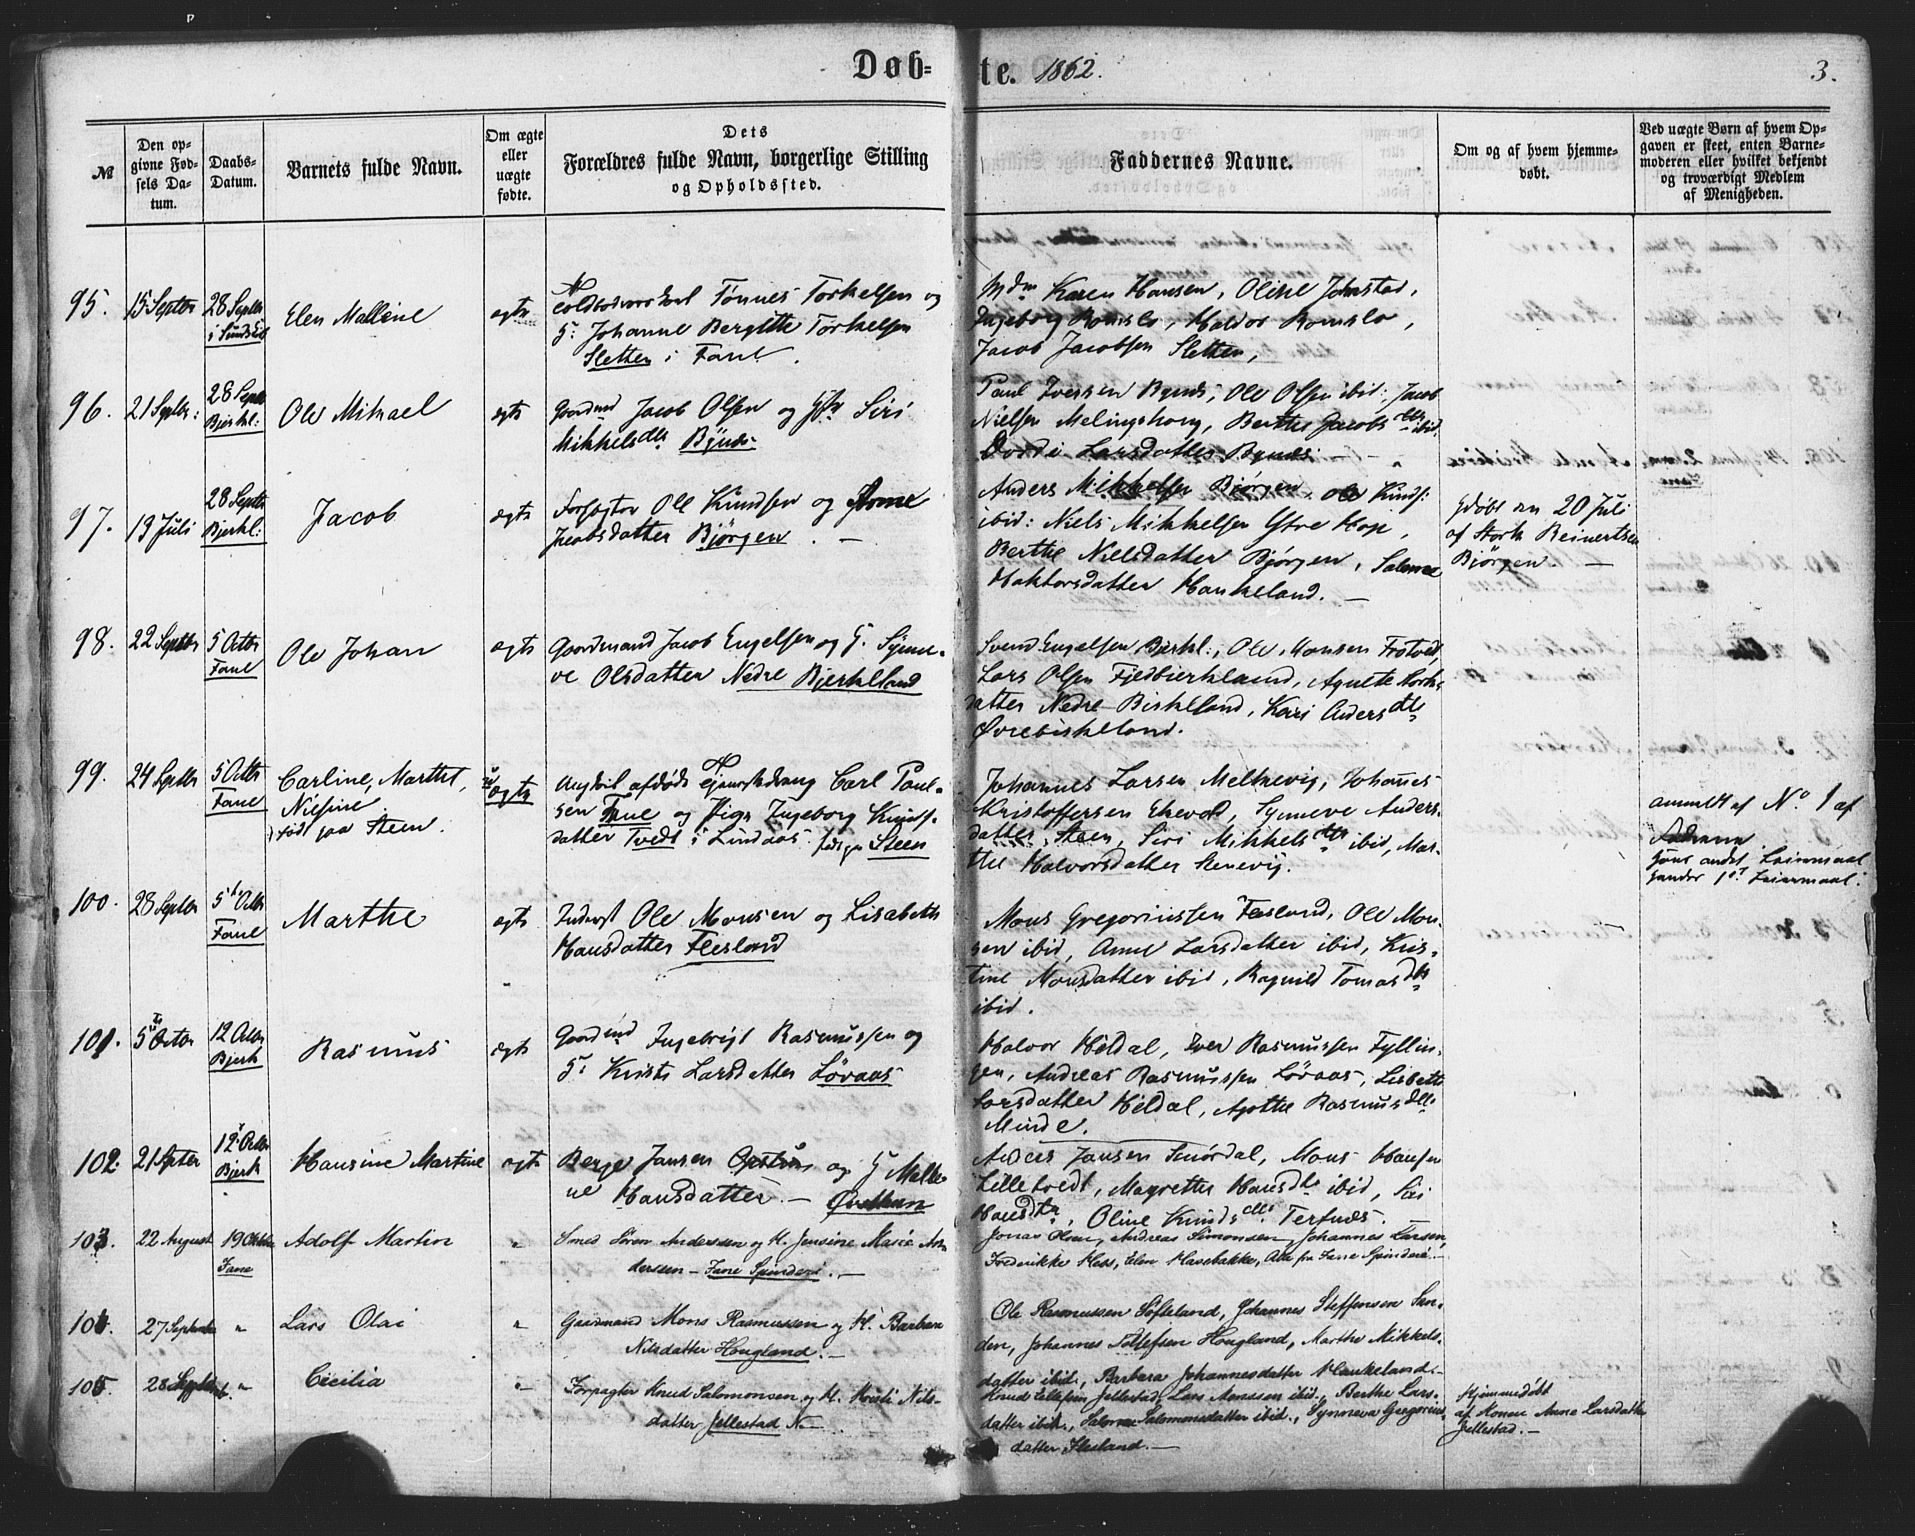 Døb= te. 1862. 3.
№
Den op-
givne Fød-
sels Da-
tum.
Daabs-
Datum.
Barnets fulde Navn.
Om ægte
eller
uægte
fødte.
Dets
Forældres fulde Navn, borgerlige Stilling
og Opholdssted.
Faddernes Navne.
Om og af hvem hjemme-
døbt.
Ved uægte Børn af hvem Op-
gaven er skeet, enten Barne-
moderen eller hvilket bekjendt
og troværdigt Medlem
af Menigheden.
95. 15 Septbr 28 Septbr
Elen Malline ægte
Tønnes Torkelsen og
G. Johanne Bergitte Torkelsen
Sletten i Fane.
Mdm Karen Hansen, Oline Johnstad,
Ingeborg Romslo, Haldor Romslo,
Jacob Jacobsen Sletten,
96. 21 Septbr: 28 Septbr
Bjerkl: Ole Mikael ægte
Gaardmd Jacob Olsen og Siri
Mikkelsdtr Bynes
Paul Iversen Bynes, Ole Olsen ibid: Jacob
Nielsen Melingshoug, Berthe Jacobsdtr ibid,
Larsdatter Bynes. -
97. 19 Juli 28 Septbr
Bjerkl: Jacob ægte
Ole Knudsen og Anne
Jacobsdatter Bjørgen. -
Anders Mikkelsen Bjørgen, Ole Knuds:
ibid: Niels Mikkelsen Ytre Hop,
Berthe Nielsdatter Bjørgen, Salomea
Haktorsdatter Haukeland. -
Gdøbt den 20 Juli
af Stork Reinertsen
Bjørgen. -
98. 22 Septbr 5 Octbr
Fane Ole Johan ægte
Gaardmand Jacob Engelsen og G. Synne-
ve Olsdatter Nedre Bjerkeland
Svend Engelsen Bjerkl:, Ole Monsen Frotvedt,
Lars Olsen Fjeldbierkland, Agnete
datter Nedre Birkeland, Kari Andersdtr
Øvrebirkeland.
99. 24 Septbr 5 Octbr
Fane Carline, Marthe,
Nilsine
født paa Steen. uægte
afdøde Carl Paul-
sen Fane og Pige Ingeborg Knuds-
datter Tvedt i Lindaas. Steen
Johannes Larsen Melkevig, Johannes
Kristoffersen Ekevold, Synneve Anders-
datter Steen, Siri Mikkelsdtr ibid, Mar-
the Halvorsdatter Stenevig.
anmeldt af No. 1 af
Fadderne
hans andet Leiermaal
hendes 1st Leiermaal.
100. 28 Septbr 5te Octbr
Fane Marthe ægte
Inderst Ole Monsen og Lisabeth
Hansdatter Flesland
Mons Gregoriussen Flesland, Ole Mon-
sen ibid, Anne Larsdatter ibid, Kris-
tine Monsdatter ibid, Ragnild Tomasdtr
ibid.
101. 5te Octbr 12 Octbr
Bjerk Rasmus ægte
Gaardmd Ingebrigt Rasmussen og
G. Kristi Larsdatter Løvaas
Halvor Heldal, Iver Rasmussen Fyllin-
gen, Andreas Rasmussen Løvaas, Lisbeth
Larsdatter Heldal, Agathe Rasmusdtr
Minde.
102: 21 Septer 12 Octbr
Bjerk Hansine Martine ægte
Berge Jansen og G Malle-
ne Hansdatter -
Anders Jansen Smørdal, Mons Hansen
Lilletvedt, Magrethe Hansdtr ibid, Siri
Hansdtr, Oline Knudsdtr Tertnæs.
103. 22 August 19 Oktbr
Fane Adolf Martin "
Smed Søren Anderssen og H. Jensine Marie An-
derssen - Fane Spinderi. -
Jonas Olsen, Andreas Simonsen, Johannes Larsen,
Frederikke Hess, Elen Hasebakke, Alle fra Fane Spinderi. -
104. 27 Septembr " Lars Olai "
Gaardmand Mons Rasmussen og H. Barbara
Nilsdatter Hougland. -
Ole Rasmussen Søfteland, Johannes Steffensen San-
den, Johannes Tollefsen Hougland, Marthe Mikkels-
datter ibid., Barbara Johannesdatter Haukeland. -
105. 28 Septbr. " Cecilia "
Forpagter Knud Salomonsen og H. Kristi Nils-
datter Jellestad N. -
Knud Ellefsen Jellestad, Lars Monssen ibid., Berthe Lars-
datter ibid., Salomea Salomonsdatter ibid., Synneva Gregorius-
datter Flesland. -
Hjemmedøbt
af Konen Anna Larsdatter
Jellestad. -